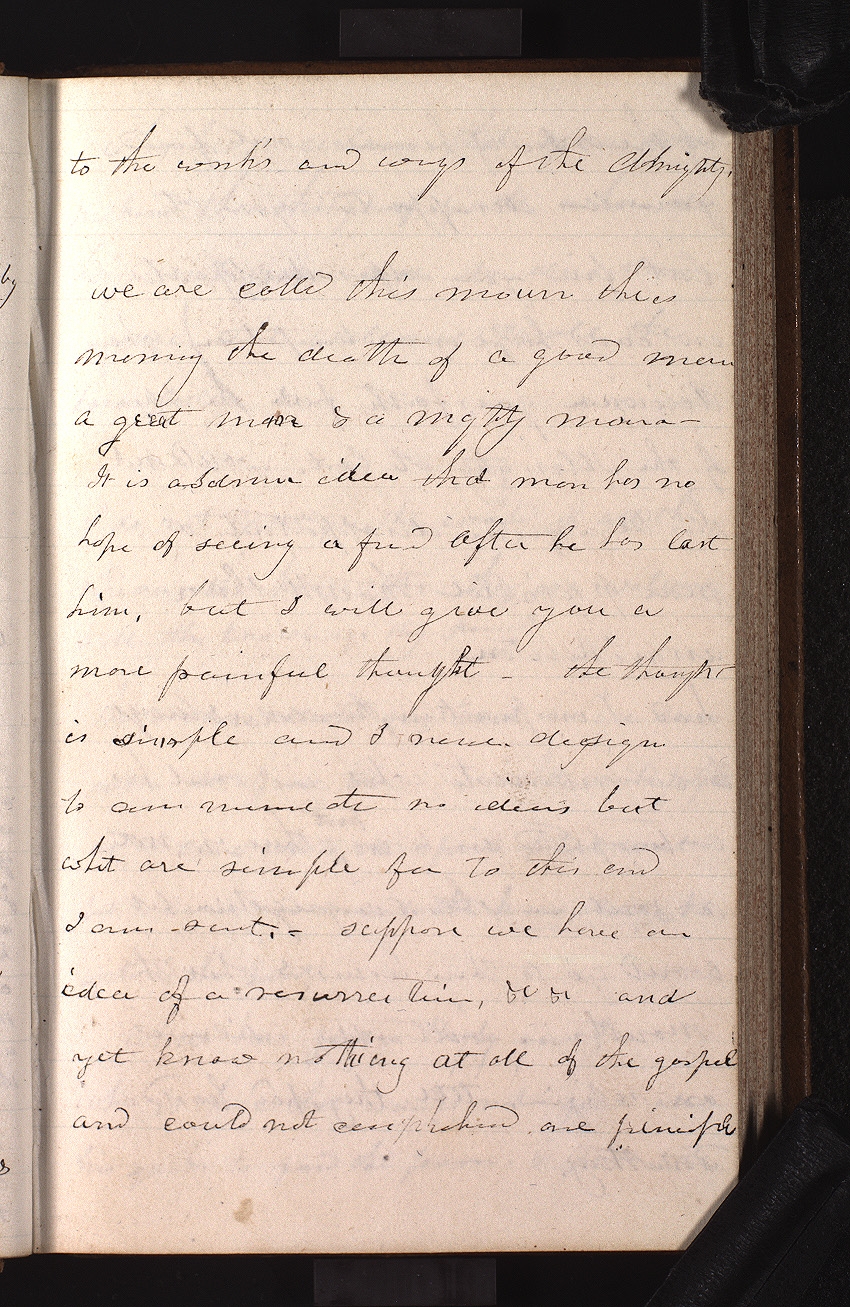 to the works and ways of the Almighty.
we are calld this mourn this
morning the death of a good man
a great man & a mighty man—
It is a solemn idea that man has no
hope of seeing a frind after he has lost
him, but I will give you a
more painful thought – the thought
is simple and I never design
to communicate no ideas but
what are simple for to this end
I am sent.– suppose we have an
idea of a resurrection, &c &c and
yet know nothing at all of the gospel
and could not comprehend one principle
by